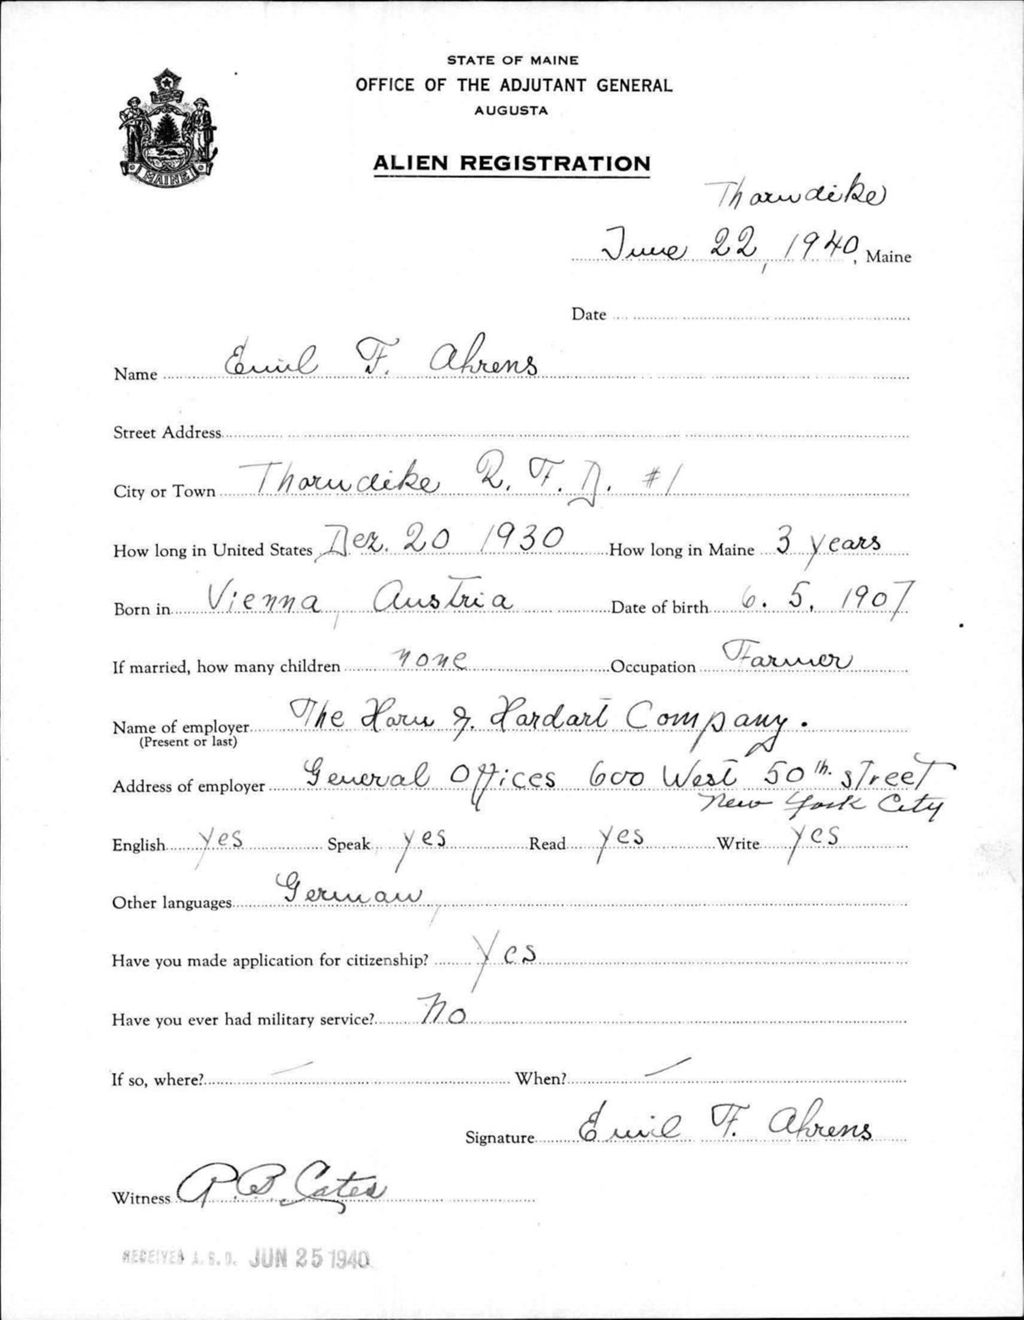 STATE OF MAINE
OFFICE OF THE ADJUTANT GENERAL
AUGUSTA
MAINE
ALIEN REGISTRATION
Thorndike
June 22, 1940, Maine
Date
Name Emil F. Ahrens
Street Address
City or Town Thorndike R. F. D. #1
How long in United States Dez. 20 1930 How long in Maine 3 years
Born in Vienna, Austria Date of birth 6. 5. 1907
If married, how many children none Occupation Farmer
Name of employer The Horn & Hardart Company.
(Present or last)
Address of employer General Offices 600 West 50th. street
New York City
English yes Speak yes Read yes Write yes
Other languages German,
Have you made application for citizenship? yes
Have you ever had military service? no
If so, where? — When? —
Signature Emil F. Ahrens
Witness R. B. Cates
RECEIVED A. G. O. JUN 25 1940